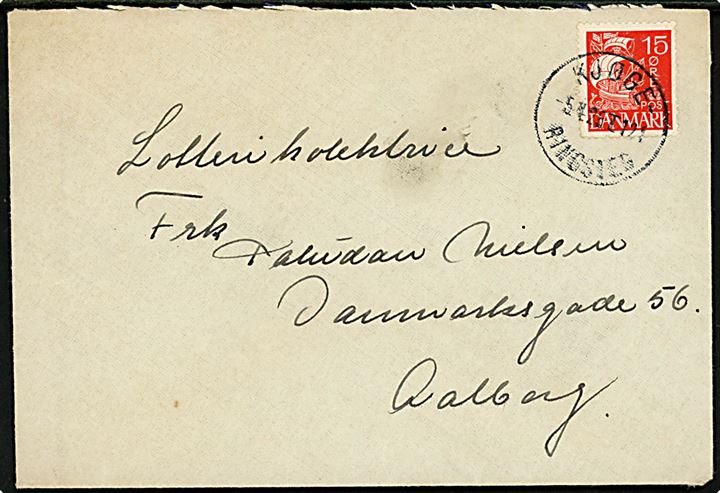 15
ØRE
POST
DANMARK
KJØGE
RINGSTED
Lotterikolektrice
Frk Paludan Nielsen
Danmarksgade 56.
Aalborg.